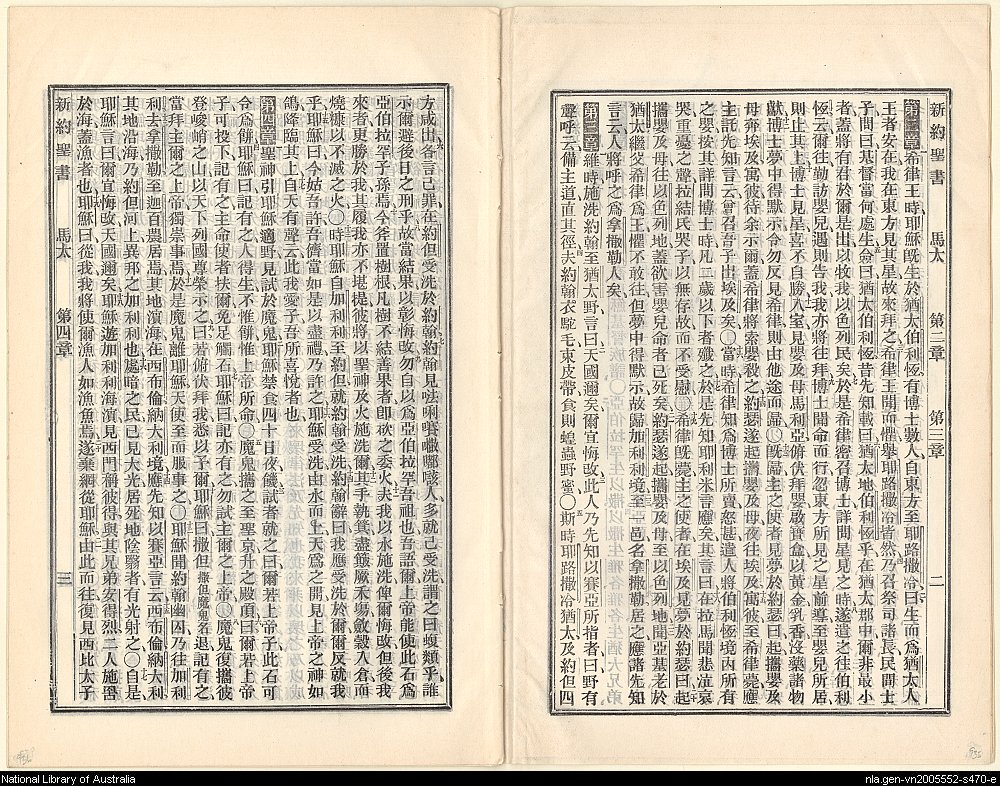 新約聖書 馬太 第二章 第三章 二
第二章希律王時耶穌旣生於猶太伯利恆有博士數人自東方至耶路撒冷曰生而爲猶太人
王者安在我在東方見其星故來拜之希律王聞而懼舉耶路撒冷皆然乃召祭司諸長民間士
子問曰基督當何處生僉曰猶太伯利恆昔先知載曰猶太地伯利恆乎在猶太郡中爾非最小
者蓋將有君於爾是出以牧我以色列民矣於是希律密召博士詳問星見之時遂遣之往伯利
恆云爾往勤訪嬰兒遇則告我我亦將往拜博士聞命而行忽東方所見之星前導至嬰兒所居
則止其上博士見星喜不自勝入室見嬰及母馬利亞俯伏拜嬰啟寶盒以黃金乳香沒藥諸物
獻博士夢中得默示令勿反見希律則由他途而歸〇旣歸主之使者見夢於約瑟曰起攜嬰及
母奔埃及寓彼待余示爾蓋希律將索嬰殺之約瑟遂起攜嬰及母夜往埃及寓彼至希律薨應
主託先知言云曾召吾子出埃及矣〇當時希律知爲博士所賣怒甚遣人將伯利恆境內所有
之嬰按其詳問博士時凡二歲以下者殲之於是先知耶利米言應矣其言曰在拉馬聞悲泣哀
哭重憂之聲拉結氏哭子以無存故而不受慰〇希律旣薨主之使者在埃及見夢於約瑟曰起
攜嬰及母往以色列地蓋欲害嬰兒命者已死矣約瑟遂起攜嬰及母至以色列地聞亞基老於
猶太繼父希律爲王懼不敢往但夢中得默示故歸加利利境至一邑名拿撒勒居之應諸先知
言云人將呼之爲拿撒勒人矣
第三章維時施洗約翰至猶太野言曰天國邇矣爾宜悔改此人乃先知以賽亞所指者曰野有
聲呼云備主道直其徑夫約翰衣駝毛束皮帶食則蝗蟲野蜜〇斯時耶路撒冷猶太及約但四
方咸出各言己罪在約但受洗於約翰約翰見𠵽唎㘔𠾐𡂿㖪人多就己受洗謂之曰蝮類乎誰
示爾避後日之刑乎故當結果以彰悔改勿自以爲亞伯拉罕吾祖也吾語爾上帝能使此石爲
亞伯拉罕子孫焉今斧置樹根凡樹不結善果者卽砍之委火夫我以水施洗俾爾悔改但後我
來者更勝於我其履我亦不堪提彼將以聖神及火施洗爾其手執箕盡簸厥禾場斂穀入倉而
燒糠以不滅之火〇時耶穌自加利利至約但就約翰受洗約翰辭曰我應受洗於爾爾反就我
乎耶穌曰今姑吾許吾儕當如是以盡禮乃許之耶穌受洗由水而上天爲之開見上帝之神如
鴿降臨其上自天有聲云此我愛子吾所喜悅者也
第四章聖神引耶穌適野見試於魔鬼耶穌禁食四十日夜饑試者就之曰爾若上帝子此石可
令爲餅耶穌曰記有之人得生不惟餅惟上帝所命〇魔鬼攜之至聖京升之殿頂曰爾若上帝
子可投下記有之主命使者扶爾免足觸石耶穌曰記亦有之勿試主爾之上帝〇魔鬼復攜彼
登峻峭之山以天下列國尊榮示之曰若俯伏拜我悉以予爾耶穌曰撒但撒但魔鬼名退記有之
當拜主爾之上帝獨崇事焉於是魔鬼離耶穌天使至而服事之〇耶穌聞約翰幽囚乃往加利
利去拿撒勒至迦百農居焉其地濱海在西布倫納大利境應先知以賽亞言云西布倫納大利
其地沿海乃約但河上異邦之加利利也處暗之民已見大光居死地陰翳者有光射之〇自是
耶穌言曰爾宜悔改天國邇矣耶穌遊加利利海濱見西門稱彼得與其兄弟安得烈二人施罟
於海蓋漁者也耶穌曰從我我將使爾漁人如漁魚焉遂棄網從耶穌由此而往復見西比太子
新約聖書 馬太 第四章 三
National Library of Australia
nla.gen-vn2005552-s470-e